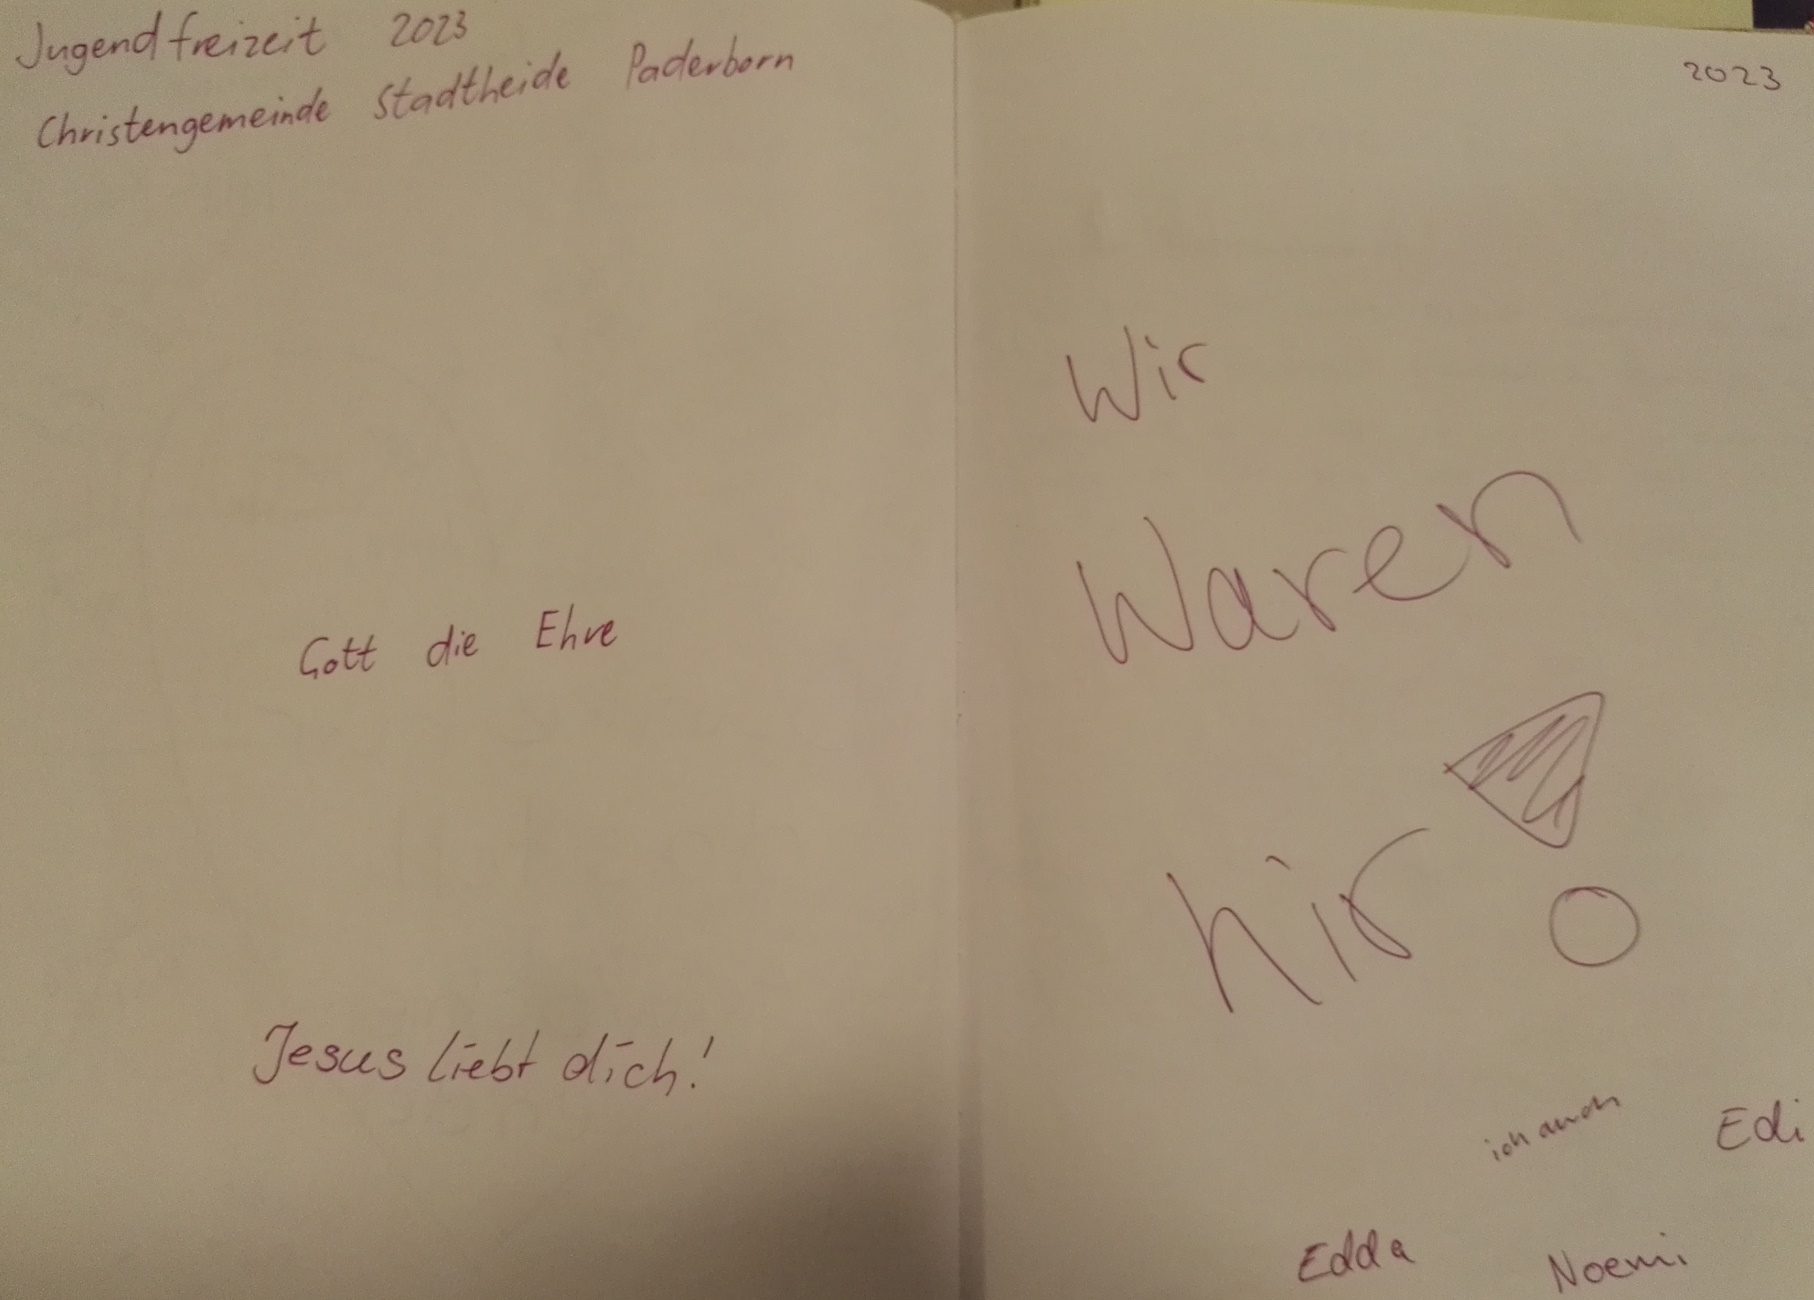 Jugendfreizeit 2023
Christengemeinde Stadtheide Paderborn
Gott die Ehre
Jesus liebt dich!
2023
Wir
Waren
hir!
ich auch
Edi
Edda
Noemi